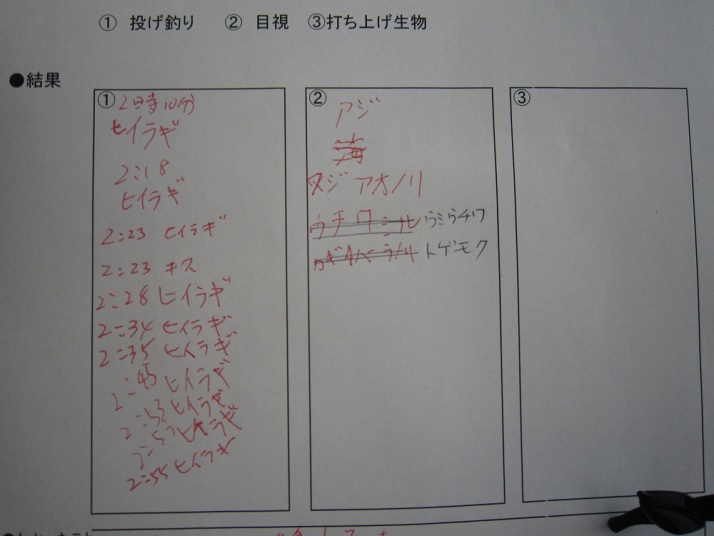 ① 投げ釣り ② 目視 ③打ち上げ生物
●結果
①2時10分
ヒイラギ
2:18
ヒイラギ
2:23 ヒイラギ
2:23 キス
2:28 ヒイラギ
2:34 ヒイラギ
2:35 ヒイラギ
2:45 ヒイラギ
2:53 ヒイラギ
ヒイラギ
2:55 ヒイラギ
②
アジ
海
ヌジアオノリ
ウミウチワ
トゲモク
③